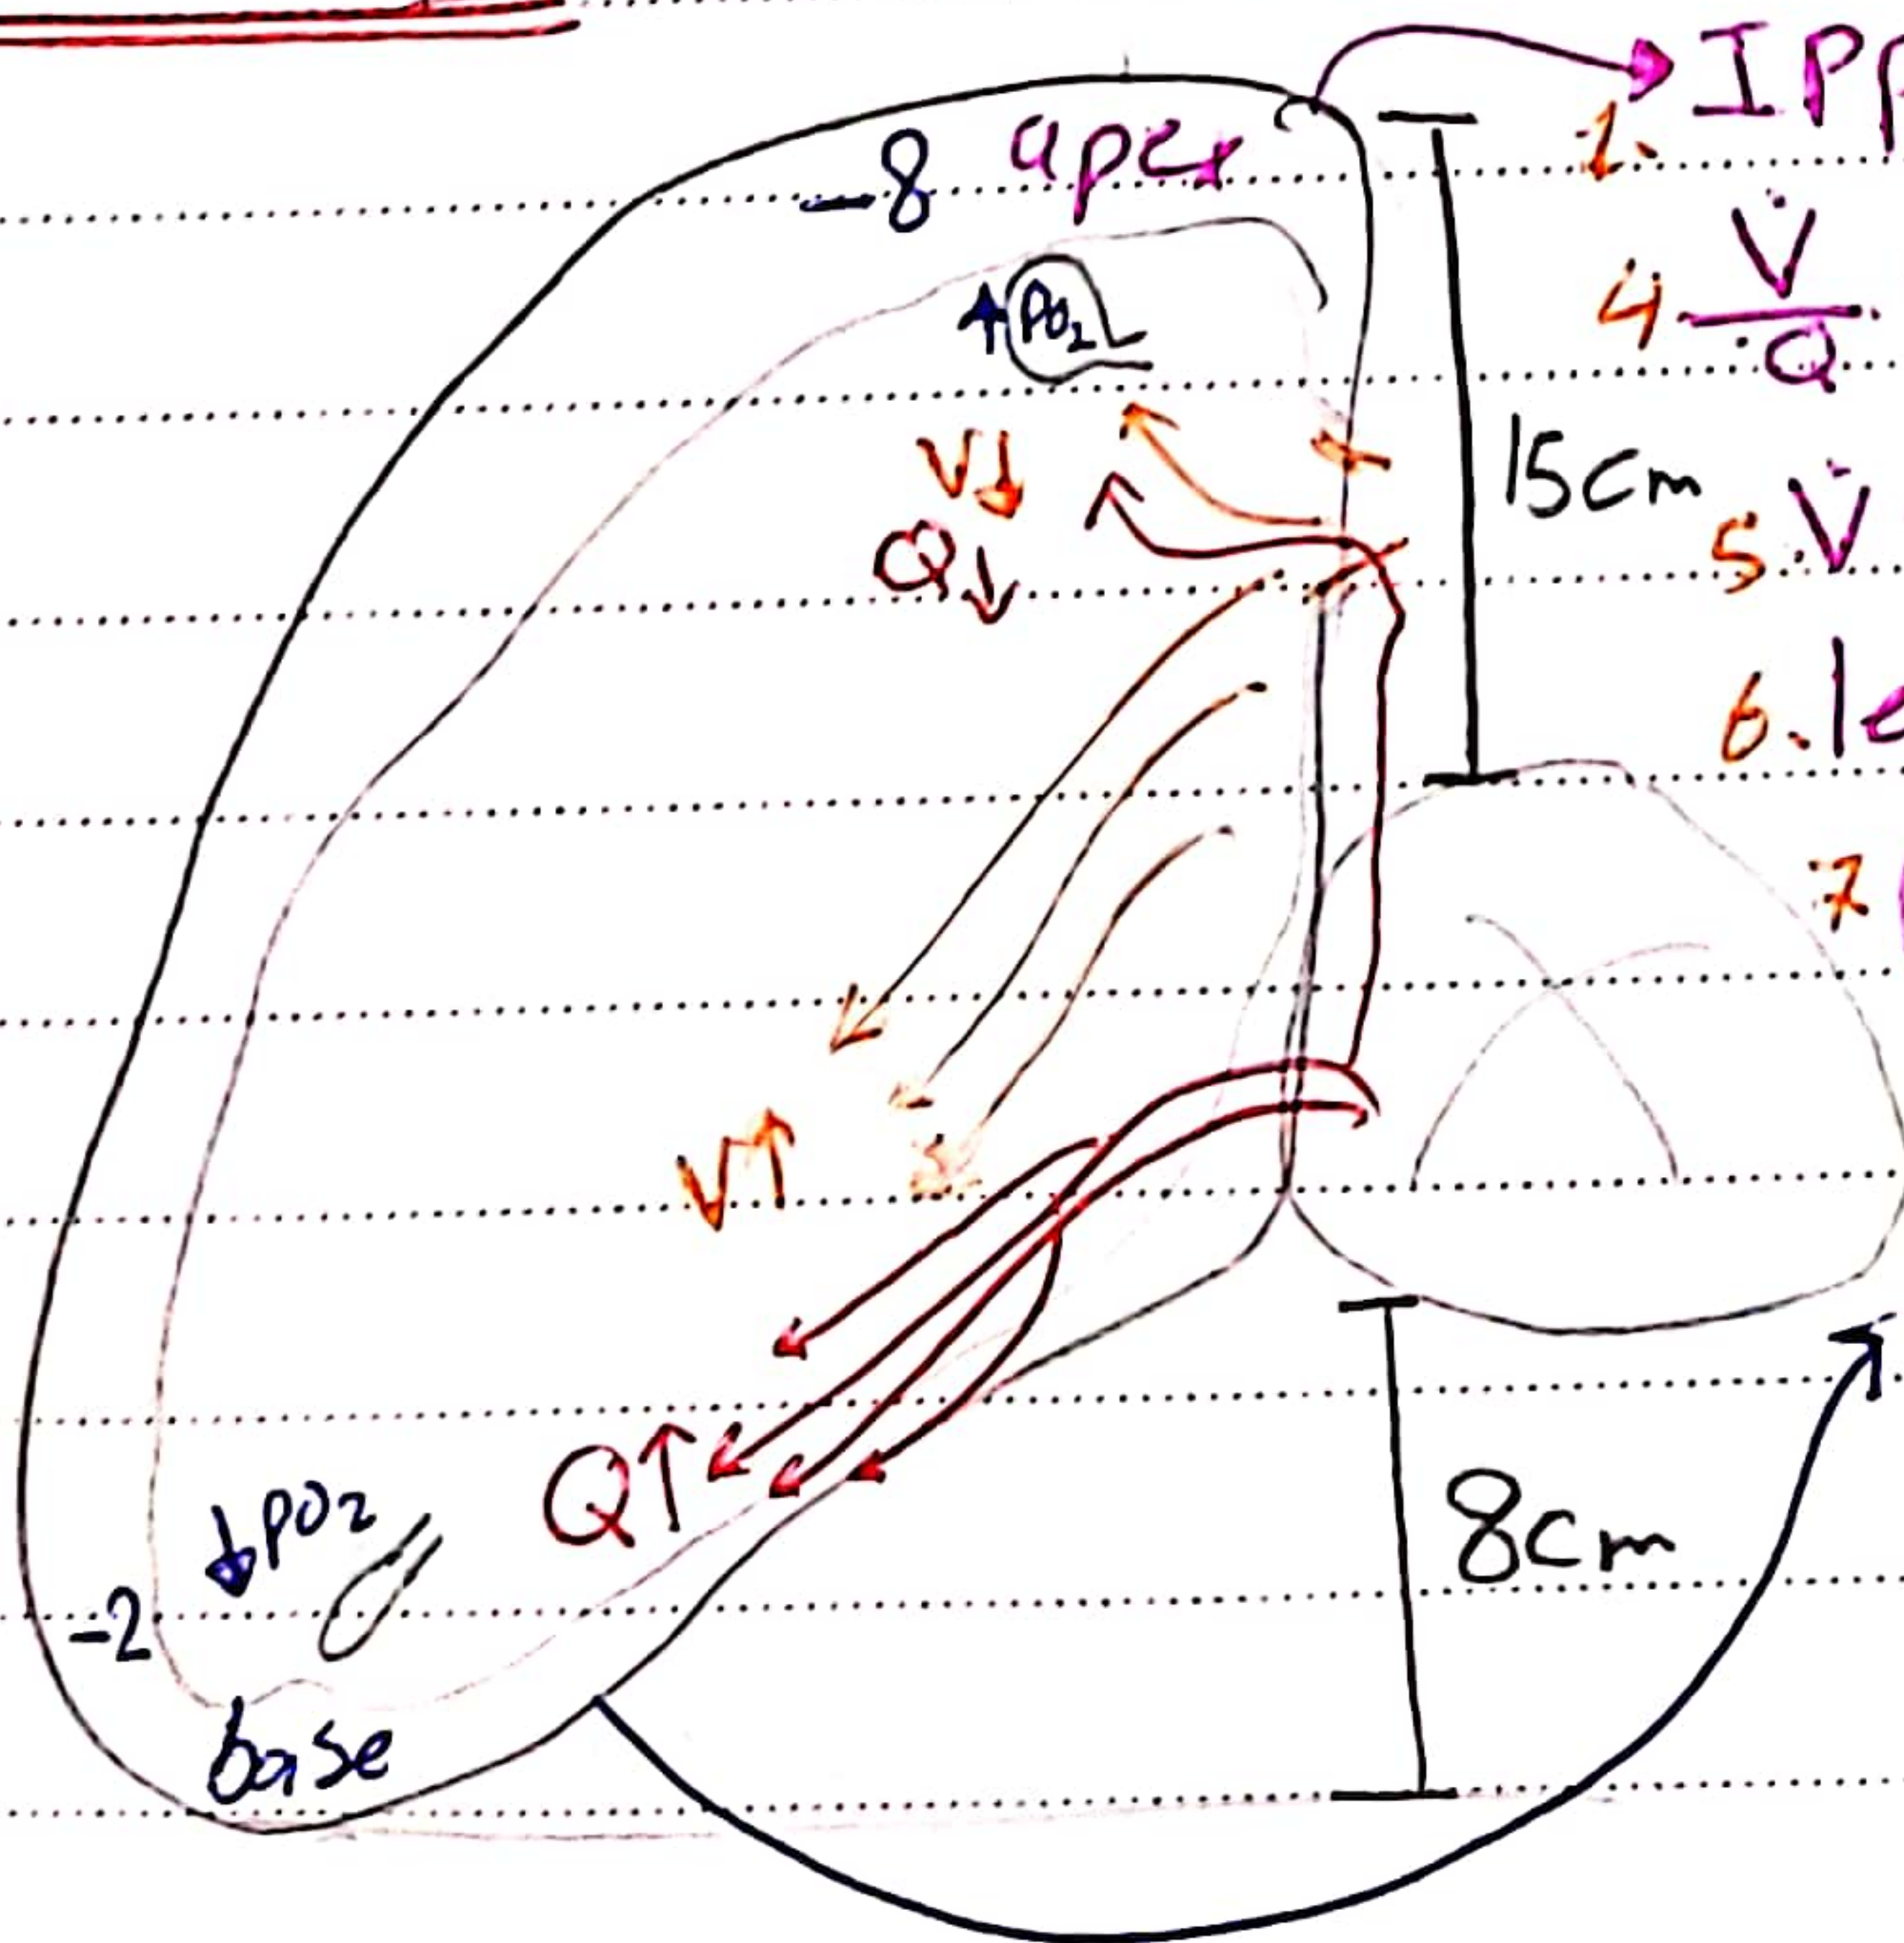 IPP
1.
-8 apex
↑ PO₂
4 V̇/Q̇
V↓
15cm
Q↓
5. V̇
6. le
7
V↑
Q↑
↓PO₂
8cm
-2
base